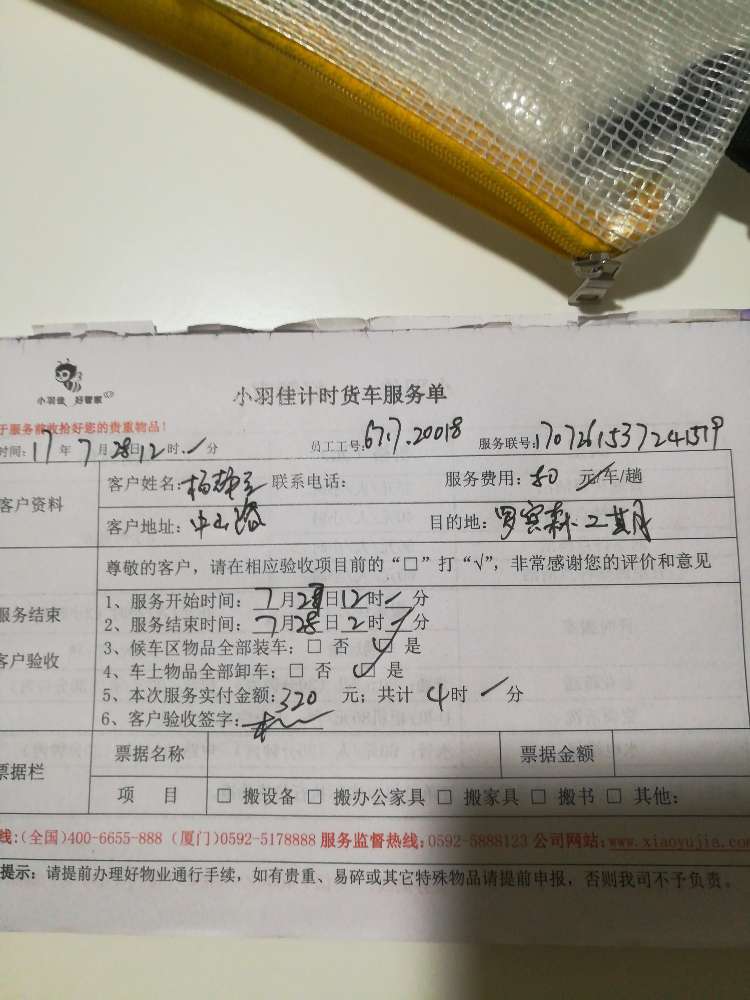 小羽佳 好管家
小羽佳计时货车服务单
于服务前收拾好您的贵重物品!
时间: 17 年 7 月 28 日 12 时 分 员工工号: 67.7.20018 服务联号: 1707261537241519
客户资料
客户姓名: 杨 联系电话: 服务费用: 80 元/车/趟
客户地址: 中山路 目的地: 罗宾森二期
尊敬的客户，请在相应验收项目前的“□”打“√”，非常感谢您的评价和意见
服务结束
客户验收
1、服务开始时间: 7 月 28 日 12 时 分
2、服务结束时间: 7 月 28 日 2 时 分
3、候车区物品全部装车: □ 否 □ 是
4、车上物品全部卸车: □ 否 □ 是
5、本次服务实付金额: 320 元; 共计 4 时 分
6、客户验收签字:
票据栏
票据名称 票据金额
项 目 □ 搬设备 □ 搬办公家具 □ 搬家具 □ 搬书 □ 其他:
线:(全国)400-6655-888 (厦门)0592-5178888 服务监督热线:0592-5888123 公司网站:www.xiaoyujia.com
提示: 请提前办理好物业通行手续，如有贵重、易碎或其它特殊物品请提前申报，否则我司不予负责。